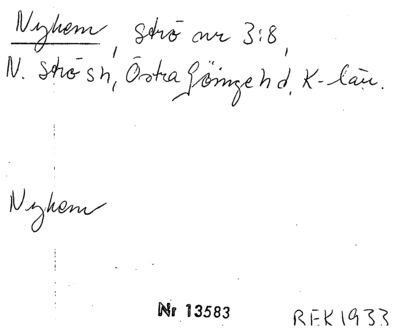 Nyhem, Strö nr 3:8,
N. Strö sn, Östra Göinge hd, K-län.
Nyhem
Nr 13583
REK 1933